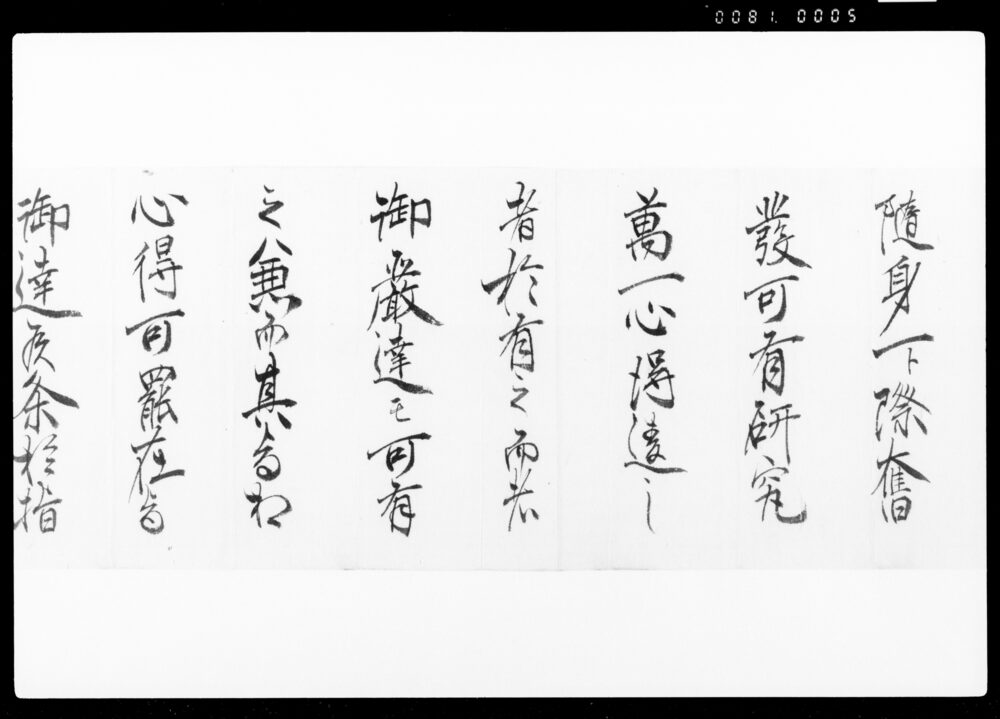 0081. 0005
隨身一ト際奮
發可有研究
萬一心得違之
者於有之而者
御嚴達モ可有
之候兼而其旨相
心得可罷在旨
御達候条於指